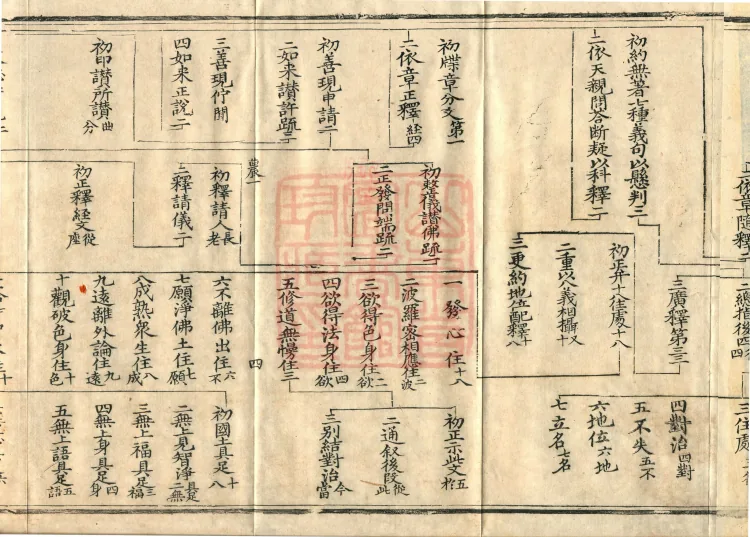 正依章隨釋二
二總指後四四
三住處
初約無著七種義句以懸判三
二依天親問答断疑以科釋二
三廣釋第三三
初正弁十住處十八
二重以八義相攝十又
三更約地位配釋十八
四對治四對
五不失五不
六地位六地
七立名七名
初牒章分文第一
二依章正釋經四
初善現申請二
二如来讃許䟽二
三善現佇聞
四如来正說二
初印讃所讃曲分
初整儀讃佛䟽二
二正發問端䟽二
農一
初釋請人長老
二釋請儀二
初正釋経文從座
一發心住十八
二波羅密相應住二波
三欲得色身住二欲
四欲得法身住四欲
五修道無慢住三
四
六不離佛出住六不
七願淨佛土住七願
八成熟衆生住八成
九遠離外論住九遠
十觀破色身住十色
初正示此文五於
二通叙後段從此
三別結對治今當
初國土具足十八
二無上見智淨具足二無
三無上福具足三福
四無上身具足四身
五無上語具足五語